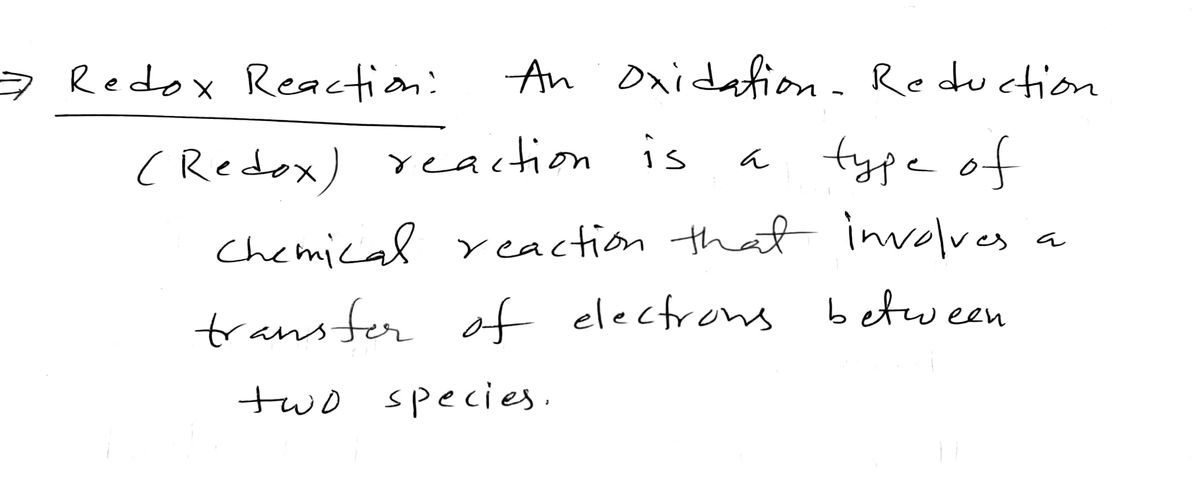 ⇒ Redox Reaction: An Oxidation-Reduction
(Redox) reaction is a type of
chemical reaction that involves a
transfer of electrons between
two species.